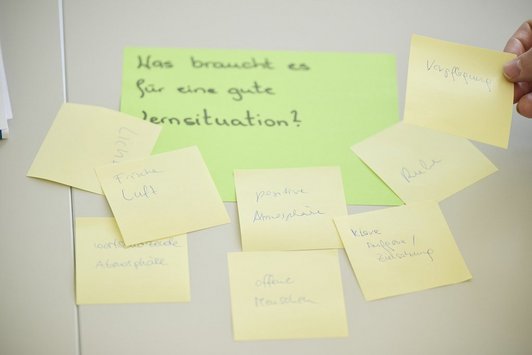 Was braucht es
für eine gute
Lernsituation?
Verpflegung
Licht
Frische
Luft
positive
Atmosphäre
Ruhe
klare
Aufgabe /
Zielsetzung
Atmosphäre
offene
Menschen